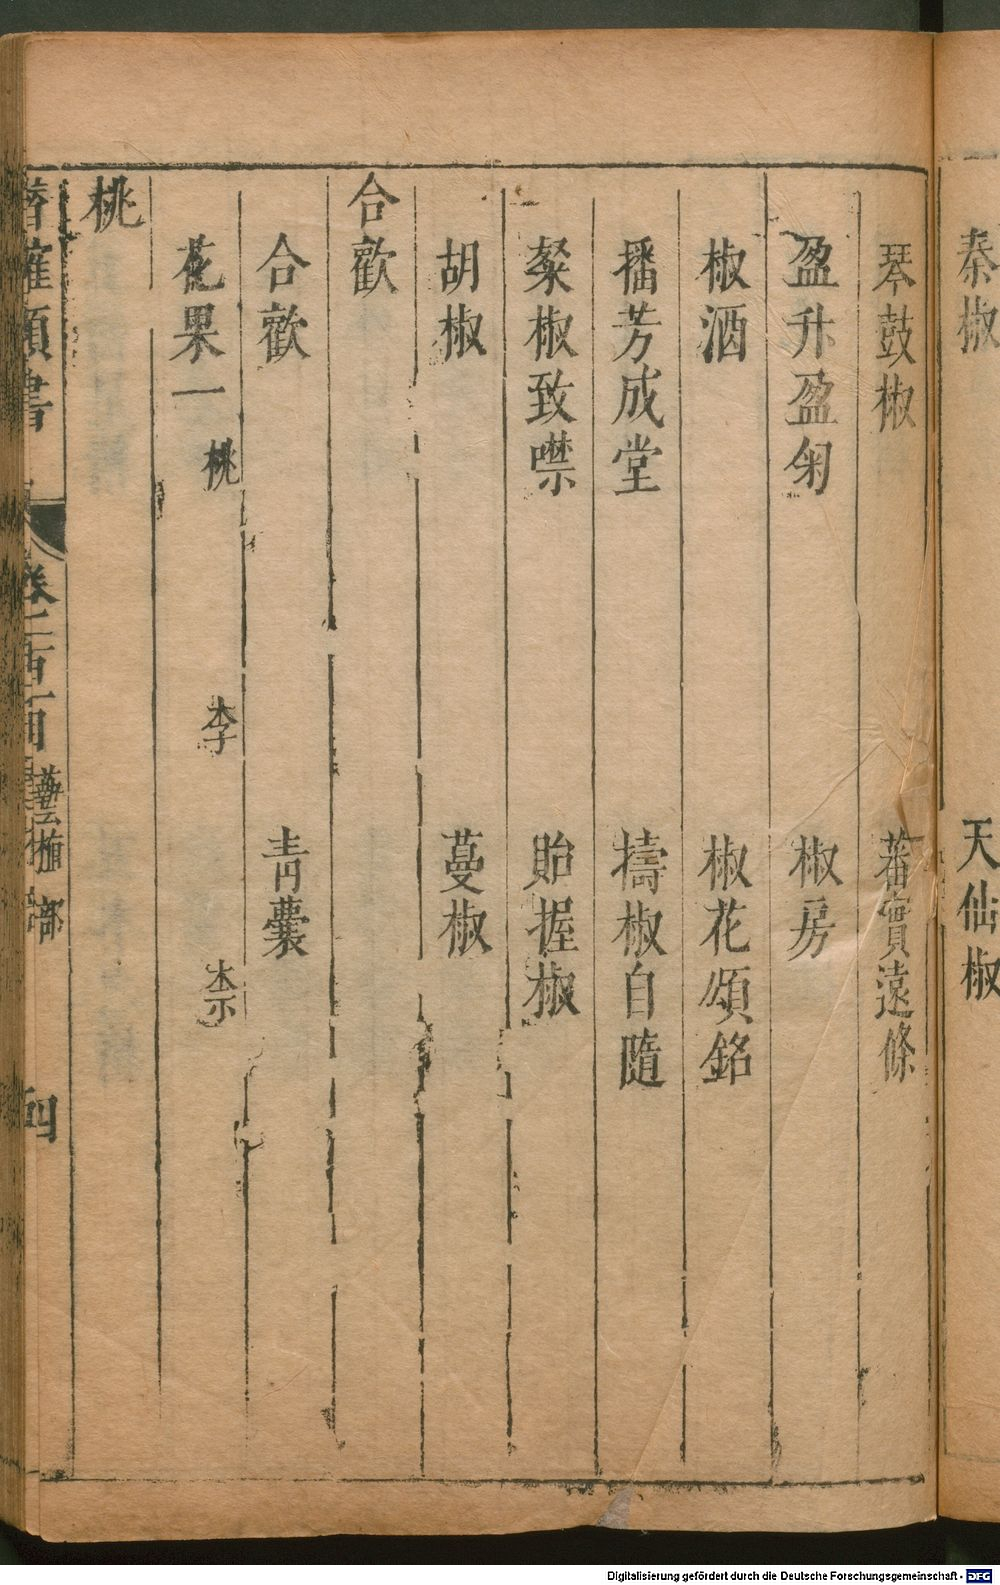 秦椒　天仙椒
琴鼓椒　蕃實遠條
盈升盈匊　椒房
椒酒　椒花頌銘
播芳成堂　擣椒自隨
粲椒致噤　貽握椒
胡椒　蔓椒
合歡
合歡　青囊
花果一　桃　李　柰
桃
類書
卷二百
部
四
Digitalisierung gefördert durch die Deutsche Forschungsgemeinschaft - DFG